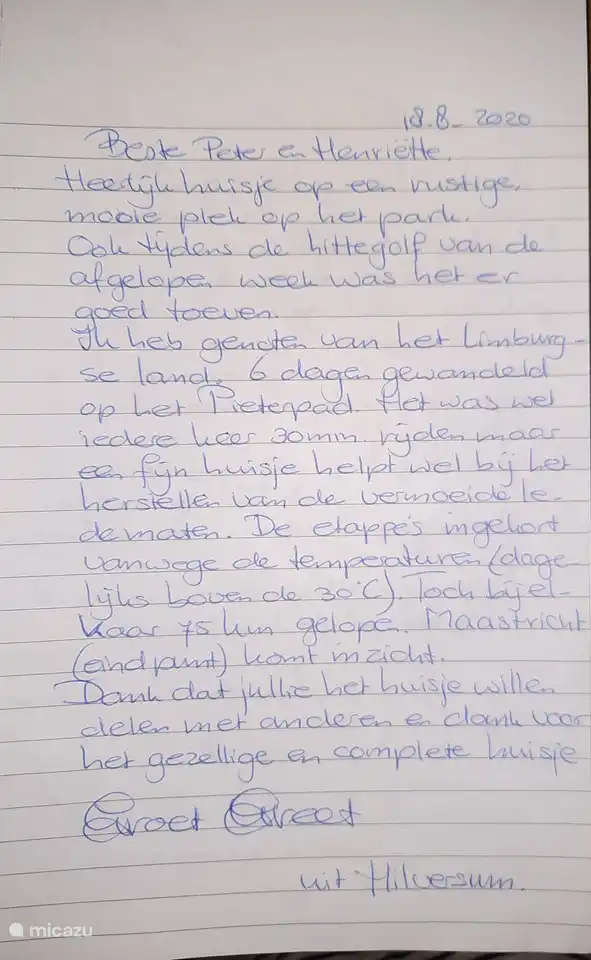 18-8-2020
Beste Peter en Henriëtte.
Heerlijk huisje op een rustige,
mooie plek op het park.
Ook tijdens de hittegolf van de
afgelopen week was het er
goed toeven.
Ik heb genoten van het Limburg-
se land. 6 dagen gewandeld
op het Pieterpad. Het was wel
iedere keer 30 min. rijden maar
een fijn huisje helpt wel bij het
herstellen van de vermoeide le-
dematen. De etappe's ingekort
vanwege de temperaturen (dage-
lijks boven de 30°C). Toch bij el-
kaar 75 km gelope. Maastricht
(eindpunt) komt in zicht.
Dank dat jullie het huisje willen
delen met anderen en dank voor
het gezellige en complete huisje
Groet Greet
uit Hilversum.
micazu